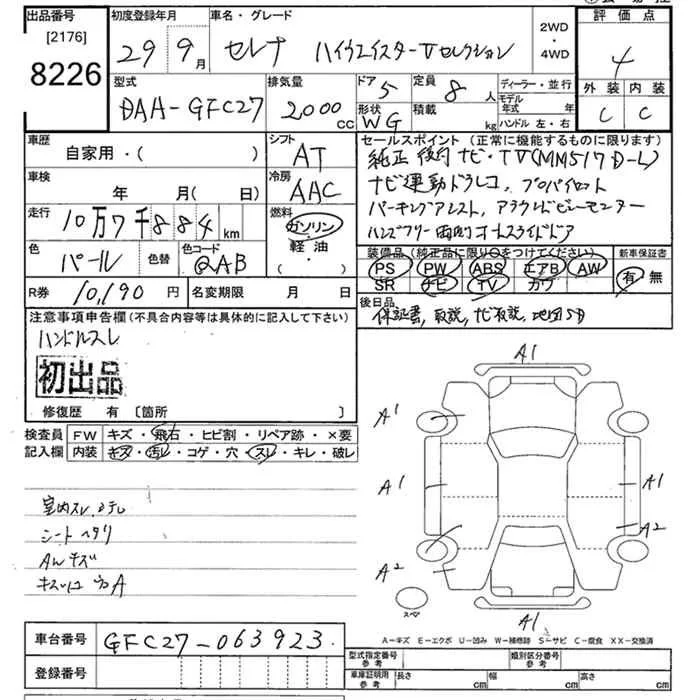 出品番号 初度登録年月 車名・グレード 2WD・4WD 評価点
[2176]
8226
29年9月 セレナ ハイウェイスターVセレクション 4
型式 排気量 ドア 5 定員 8人 ディーラー・並行 外装 内装
DAA-GFC27 2000cc 形状 WG 積載 kg モデル年式 年 C C
ハンドル 左・右
車歴 シフト セールスポイント(正常に機能するものに限ります)
自家用・( ) AT 純正後付ナビ・TV(MM517D-L)
車検 冷房 ナビ連動ドラレコ、プロパイロット
年 月(日) AAC パーキングアシスト、アラウンドビューモニター
走行 燃料 ハンズフリー両側オートスライドドア
10万7千884km ガソリン 軽油・( ・ )
色 パール 色替 色コード QAB
装備品(純正品に限り○をつけてください) 新車保証書
PS PW ABS エアB AW 有・無
SR ナビ TV カワ
R券 10,190円 名変期限 月 日
後日品
保証書、取説、ナビ取説、地図SD
注意事項申告欄(不具合内容等は具体的に記入して下さい)
ハンドルスレ
初出品
修復歴 有〔箇所 〕
検査員記入欄 FW キズ・飛石・ヒビ割・リペア跡・×要
内装 キズ・汚レ・コゲ・穴・スレ・キレ・破レ
A1
A1
A1 A1
A2
A2
スペ
A1
室内スレ、
シートヘタリ
AWキズ
A-キズ E-エクボ U-凹み W-補修跡 S-サビ C-腐食 XX-交換済
車台番号 GFC27-063923
登録番号
型式指定番号 参考 類別区分番号 参考
車庫証明用 参考 長さ cm 幅 cm 高さ cm